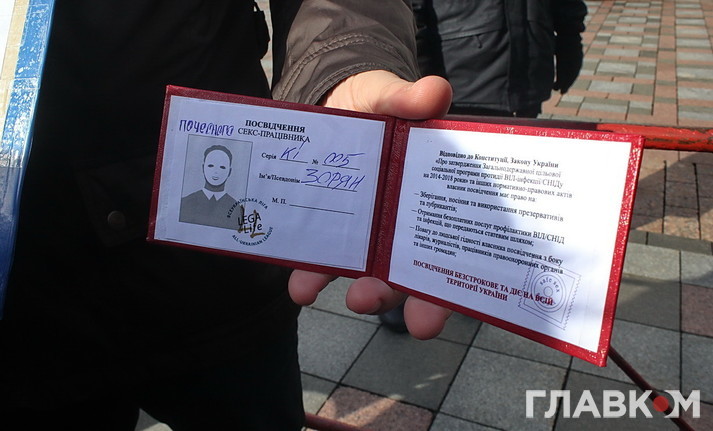 Почерного
ПОСВІДЧЕННЯ
СЕКС-ПРАЦІВНИКА
Серія КІ № 005
Ім'я/Псевдонім ЗОРЯН
М. П.
ВСЕУКРАЇНСЬКА ЛІГА
LEGA
Life
ALL-UKRAINIAN LEAGUE
Відповідно до Конституції, Закону України
«Про затвердження Загальнодержавної цільової
соціальної програми протидії ВІЛ-інфекції/СНІДу
на 2014-2018 роки» та інших нормативно-правових актів
власник посвідчення має право на:
– Зберігання, носіння та використання презервативів
та лубрикантів;
– Отримання безоплатних послуг профілактики ВІЛ/СНІД
та інфекцій, що передаються статевим шляхом;
– Повагу до людської гідності власника посвідчення з боку
лікарів, журналістів, працівників правоохоронних органів
та інших громадян;
ПОСВІДЧЕННЯ БЕЗСТРОКОВЕ ТА ДІЄ НА ВСІЙ
ТЕРИТОРІЇ УКРАЇНИ
ГЛАВКОМ